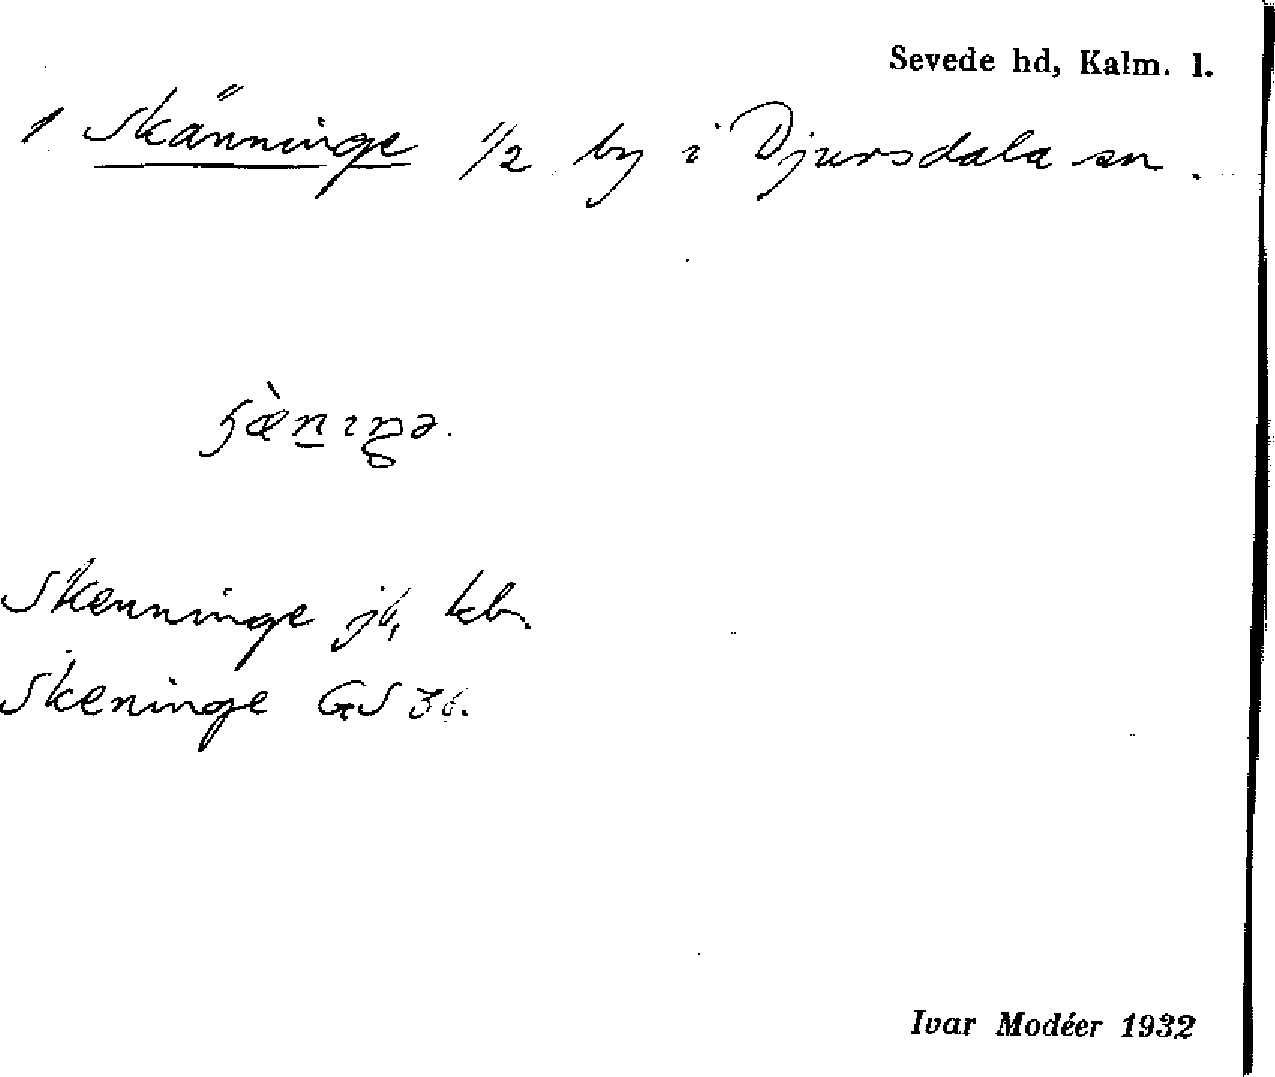 Sevede hd, Kalm. l.
1 Skänninge 1/2 by i Djursdala sn.
Skenninge jb, kb.
Skeninge GS
Ivar Modéer 1932